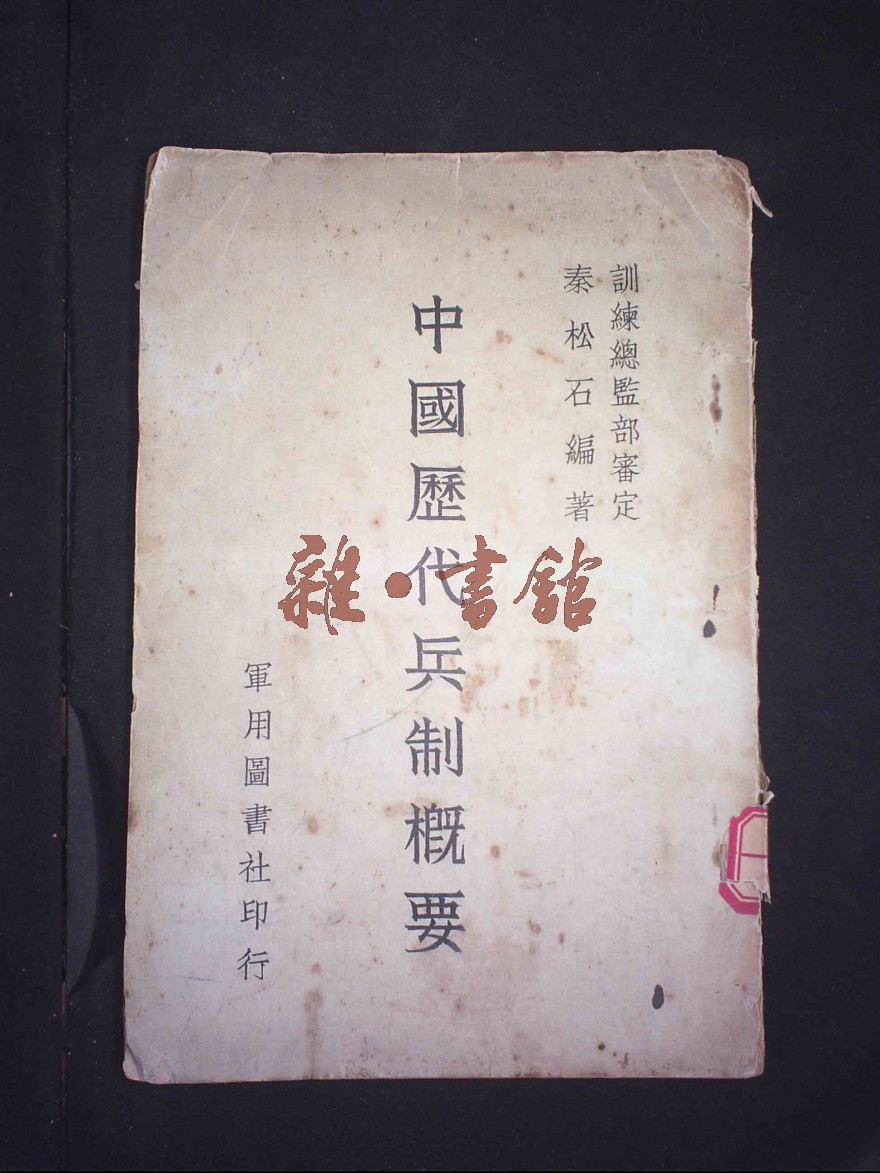 訓練總監部審定
秦松石編著
中國歷代兵制概要
軍用圖書社印行
雜·書館